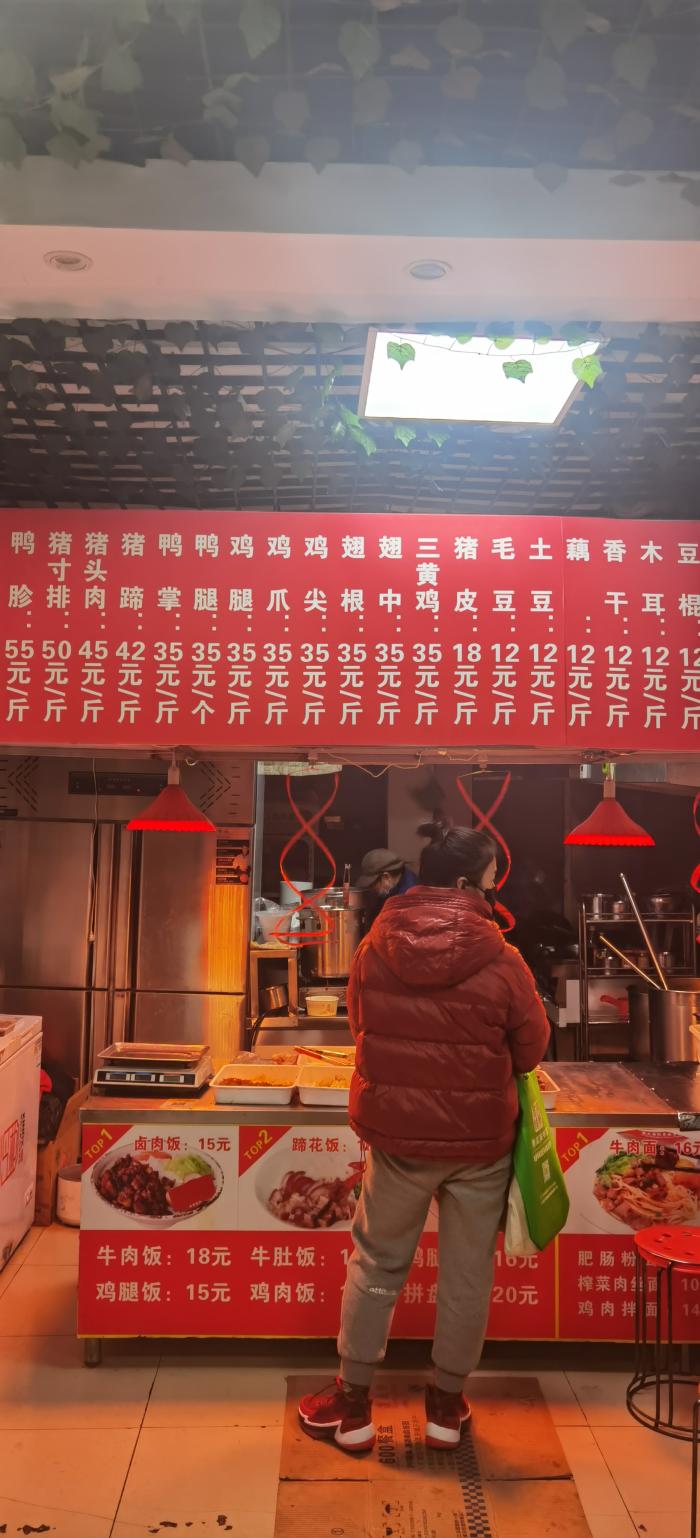 鸭胗:55元/斤
猪寸排:50元/斤
猪头肉:45元/斤
猪蹄:42元/斤
鸭掌:35元/斤
鸭腿:35元/个
鸡腿:35元/斤
鸡爪:35元/斤
鸡尖:35元/斤
翅根:35元/斤
翅中:35元/斤
三黄鸡:35元/斤
猪皮:18元/斤
毛豆:12元/斤
土豆:12元/斤
藕:12元/斤
香干:12元/斤
木耳:12元/斤
豆棍:12元/斤
TOP1 卤肉饭:15元
TOP2 蹄花饭:
TOP1 牛肉面:16元
牛肉饭:18元 牛肚饭: 16元
鸡腿饭:15元 鸡肉饭: 拼盘 20元
肥肠粉
榨菜肉丝面 10
鸡肉拌面 14
600餐盒